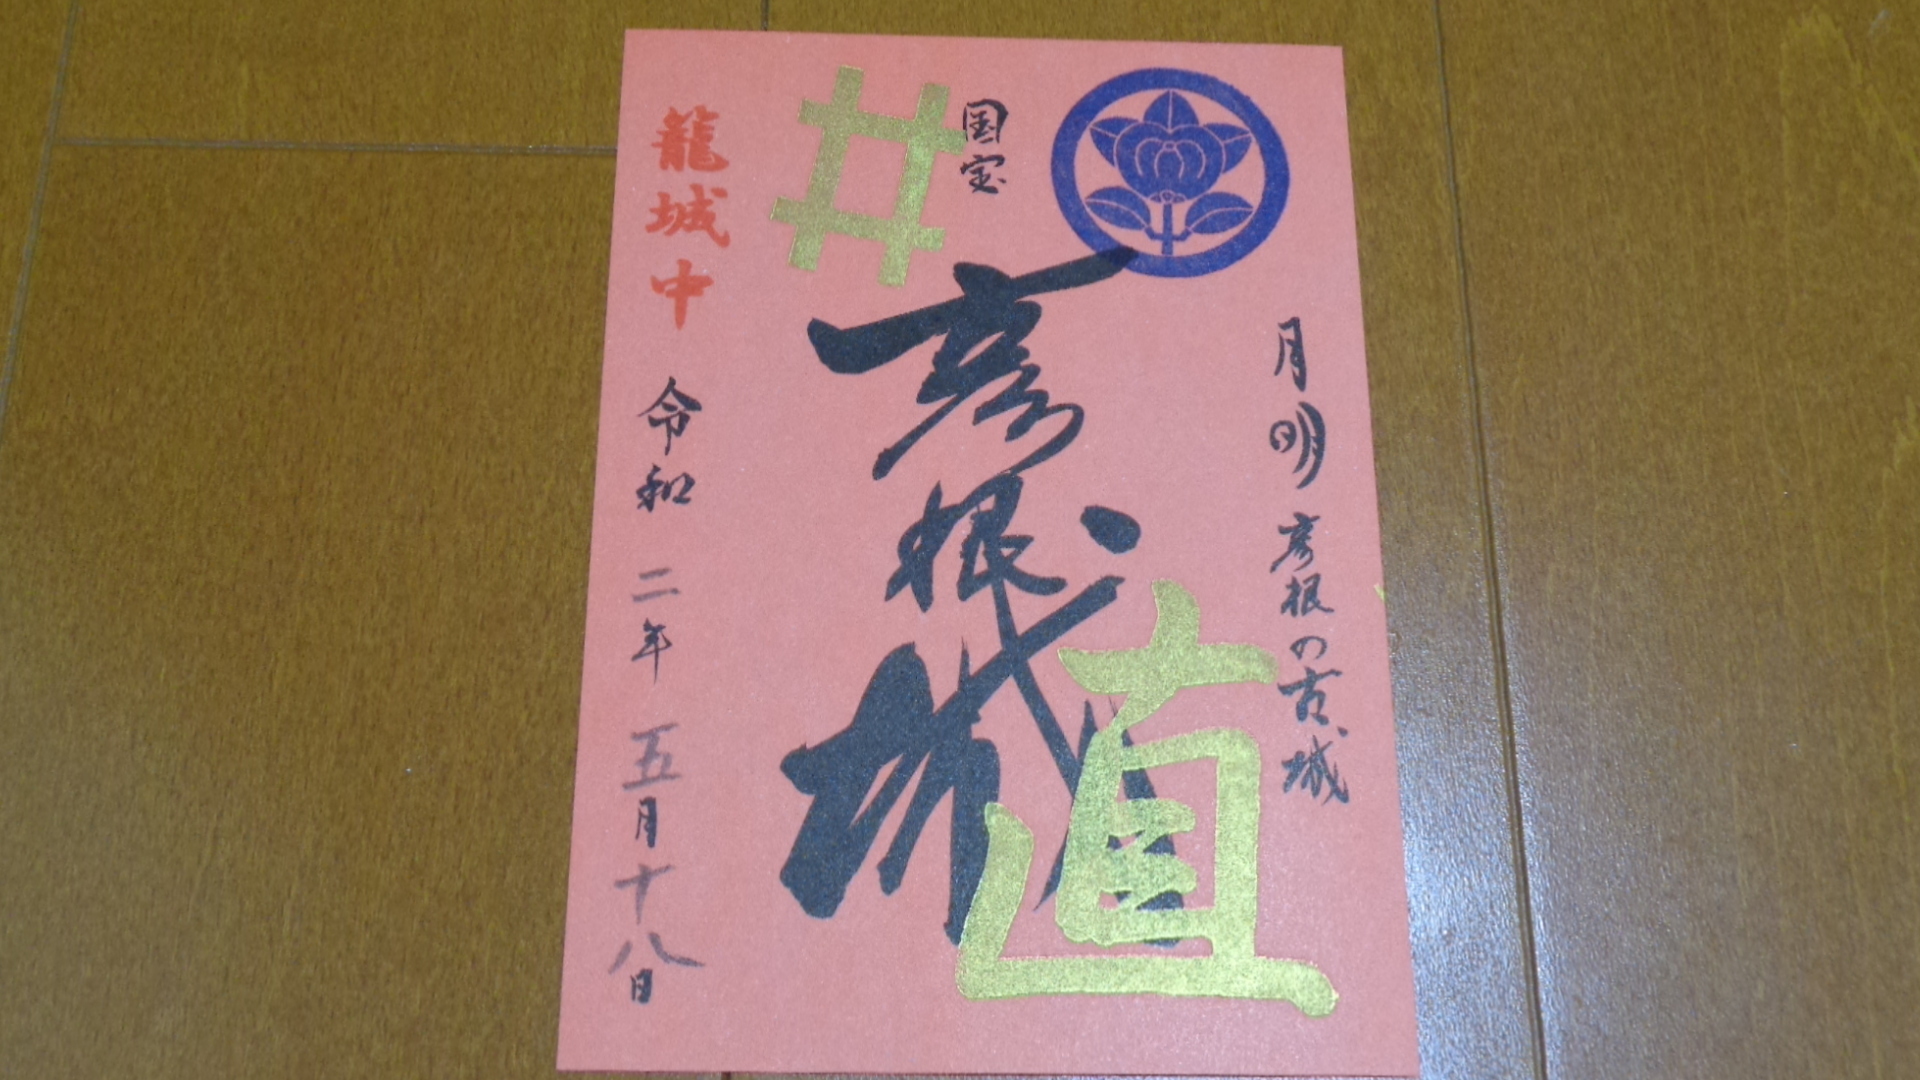 月明彦根の古城
国宝
彦根城
井
直
籠城中
令和二年五月十八日